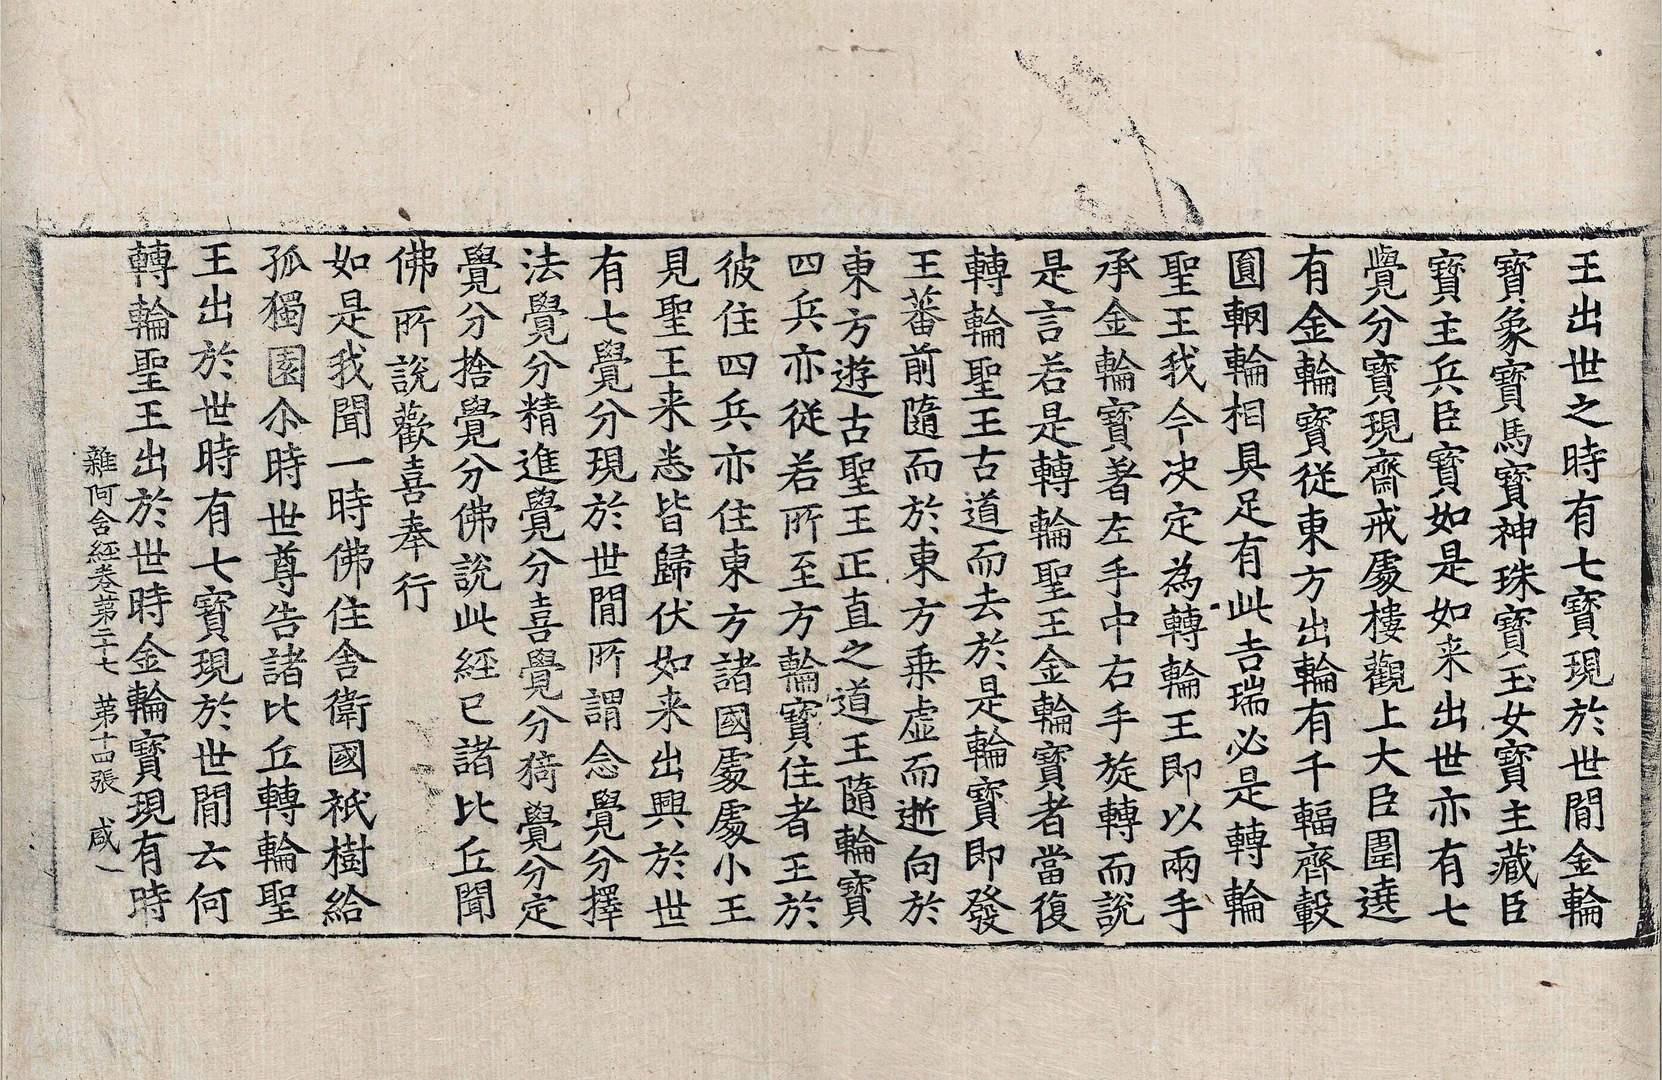 王出世之時有七寶現於世間金輪
寶象寶馬寶神珠寶玉女寶主藏臣
寶主兵臣寶如是如来出世亦有七
覺分寶現齋戒處樓觀上大臣圍遶
有金輪寶從東方出輪有千輻齊轂
圓輞輪相具足有此吉瑞必是轉輪
聖王我今決定為轉輪王即以兩手
承金輪寶著左手中右手旋轉而說
是言若是轉輪聖王金輪寶者當復
轉輪聖王古道而去於是輪寶即發
王蕃前隨而於東方乗虛而逝向於
東方遊古聖王正直之道王隨輪寶
四兵亦從若所至方輪寶住者王於
彼住四兵亦住東方諸國處處小王
見聖王来悉皆歸伏如来出興於世
有七覺分現於世間所謂念覺分擇
法覺分精進覺分喜覺分猗覺分定
覺分捨覺分佛說此經已諸比丘聞
佛所說歡喜奉行
如是我聞一時佛住舍衛國祇樹給
孤獨園尒時世尊告諸比丘轉輪聖
王出於世時有七寶現於世間云何
轉輪聖王出於世時金輪寶現有時
雜阿含經卷第二十七 第十四張 咸一